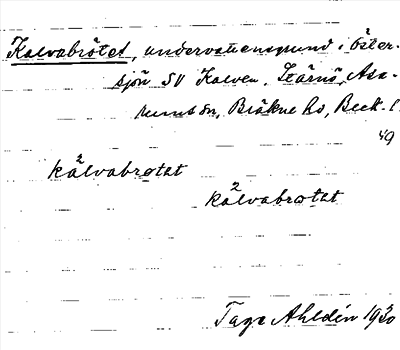 Kalvabrötet, undervattensgrund i Öster-
sjön SV Kalven, Tärnö, Asa-
rums sn, Bräkne hd, Blek. l.
49
kálvabrøtət
kálvabrøtət
Tage Ahldén 1930